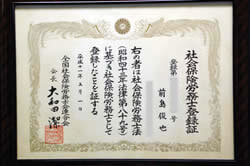 社会保険労務士登録証
登録第　　　　　号
前島俊也
右の者は社会保険労務士法
(昭和四十三年法律第八十九号)
に基づき社会保険労務士として
登録したことを証する
平成十一年五月一日
全国社会保険労務士会連合会
会長　大和田潔